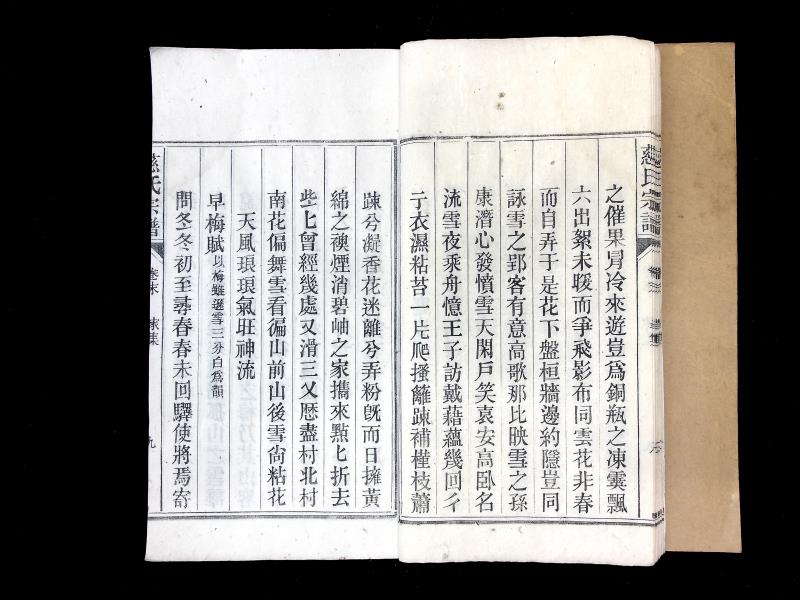 之催果冐冷來遊豈爲銅瓶之凍雲飄
六出絮未暖而爭飛影布同雲花非春
而自弄于是花下盤桓牆邊約隱豈同
詠雪之郢客有意高歌那比映雪之孫
康潛心發憤雪天閑戸笑袁安高臥名
流雪夜乘舟憶王子訪戴藉蘊幾回彳
亍衣濕粘苔一片爬搔籬踈補槿枝蕭
踈兮凝香花迷離兮弄粉旣而日擁黃
綿之襖煙消碧岫之家攜來點匕折去
些匕曾經幾處又滑三叉歷盡村北村
南花偏舞雪看徧山前山後雪尙粘花
天風琅琅氣旺神流
早梅賦以梅雖遜雪三分白爲韻
問冬冬初至尋春春未回驛使將焉寄
氏宗譜 卷末
九
氏宗譜